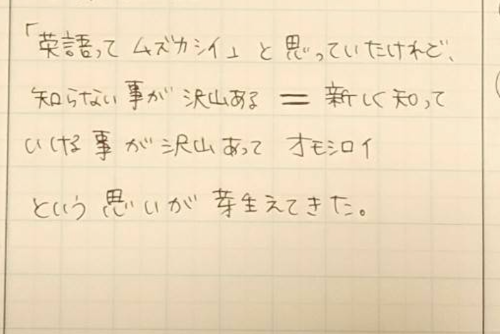 「英語って ムズカシイ」と思っていたけれど、
知らない事が沢山ある = 新しく知って
いける事が沢山あって オモシロイ
という思いが芽生えてきた。